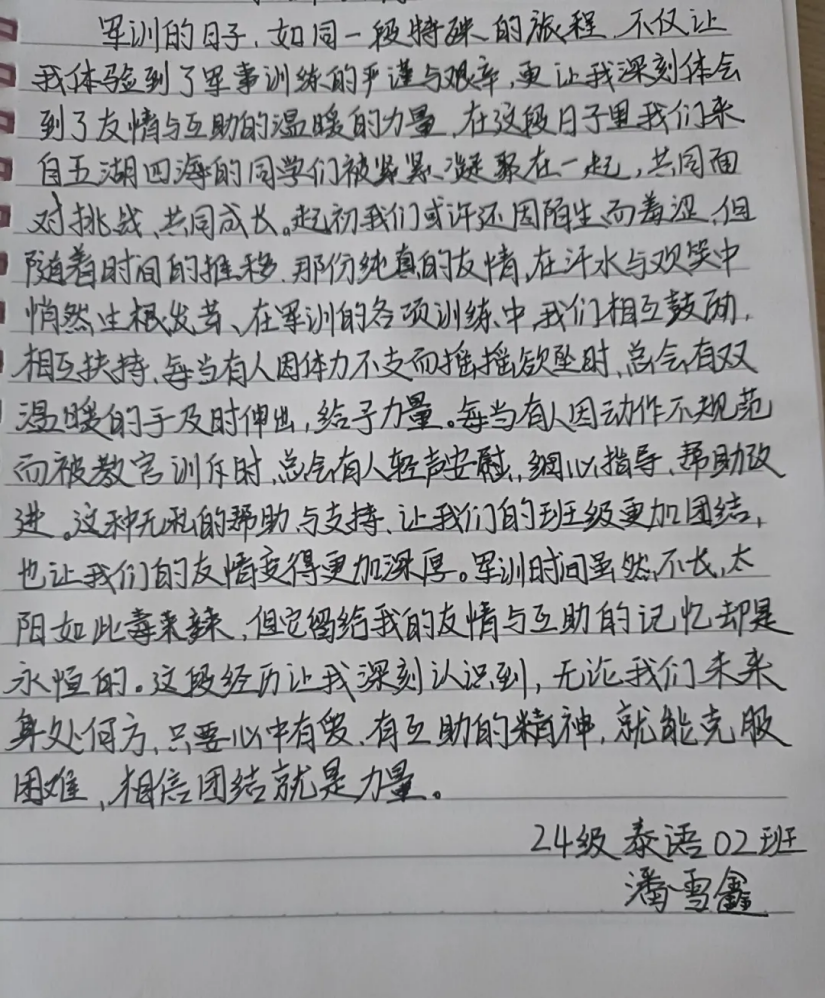 军训的日子,如同一段特殊的旅程,不仅让
我体验到了军事训练的严谨与艰辛,更让我深刻体会
到了友情与互助的温暖的力量,在这段日子里我们来
自五湖四海的同学们被紧紧凝聚在一起,共同面
对挑战、共同成长。起初我们或许还因陌生而羞涩,但
随着时间的推移,那份纯真的友情,在汗水与欢笑中
悄然生根发芽、在军训的各项训练中,我们相互鼓励,
相互扶持、每当有人因体力不支而摇摇欲坠时、总会有双
温暖的手及时伸出,给予力量。每当有人因动作不规范
而被教官训斥时、总会有人轻声安慰,细心指导、帮助改
进。这种无私的帮助与支持、让我们的班级更加团结,
也让我们的友情变得更加深厚。军训时间虽然不长,太
阳如此毒来辣,但它留给我的友情与互助的记忆却是
永恒的。这段经历让我深刻认识到,无论我们未来
身处何方、只要心中有爱、有互助的精神,就能克服
困难、相信团结就是力量。
24级泰语02班
潘雪鑫